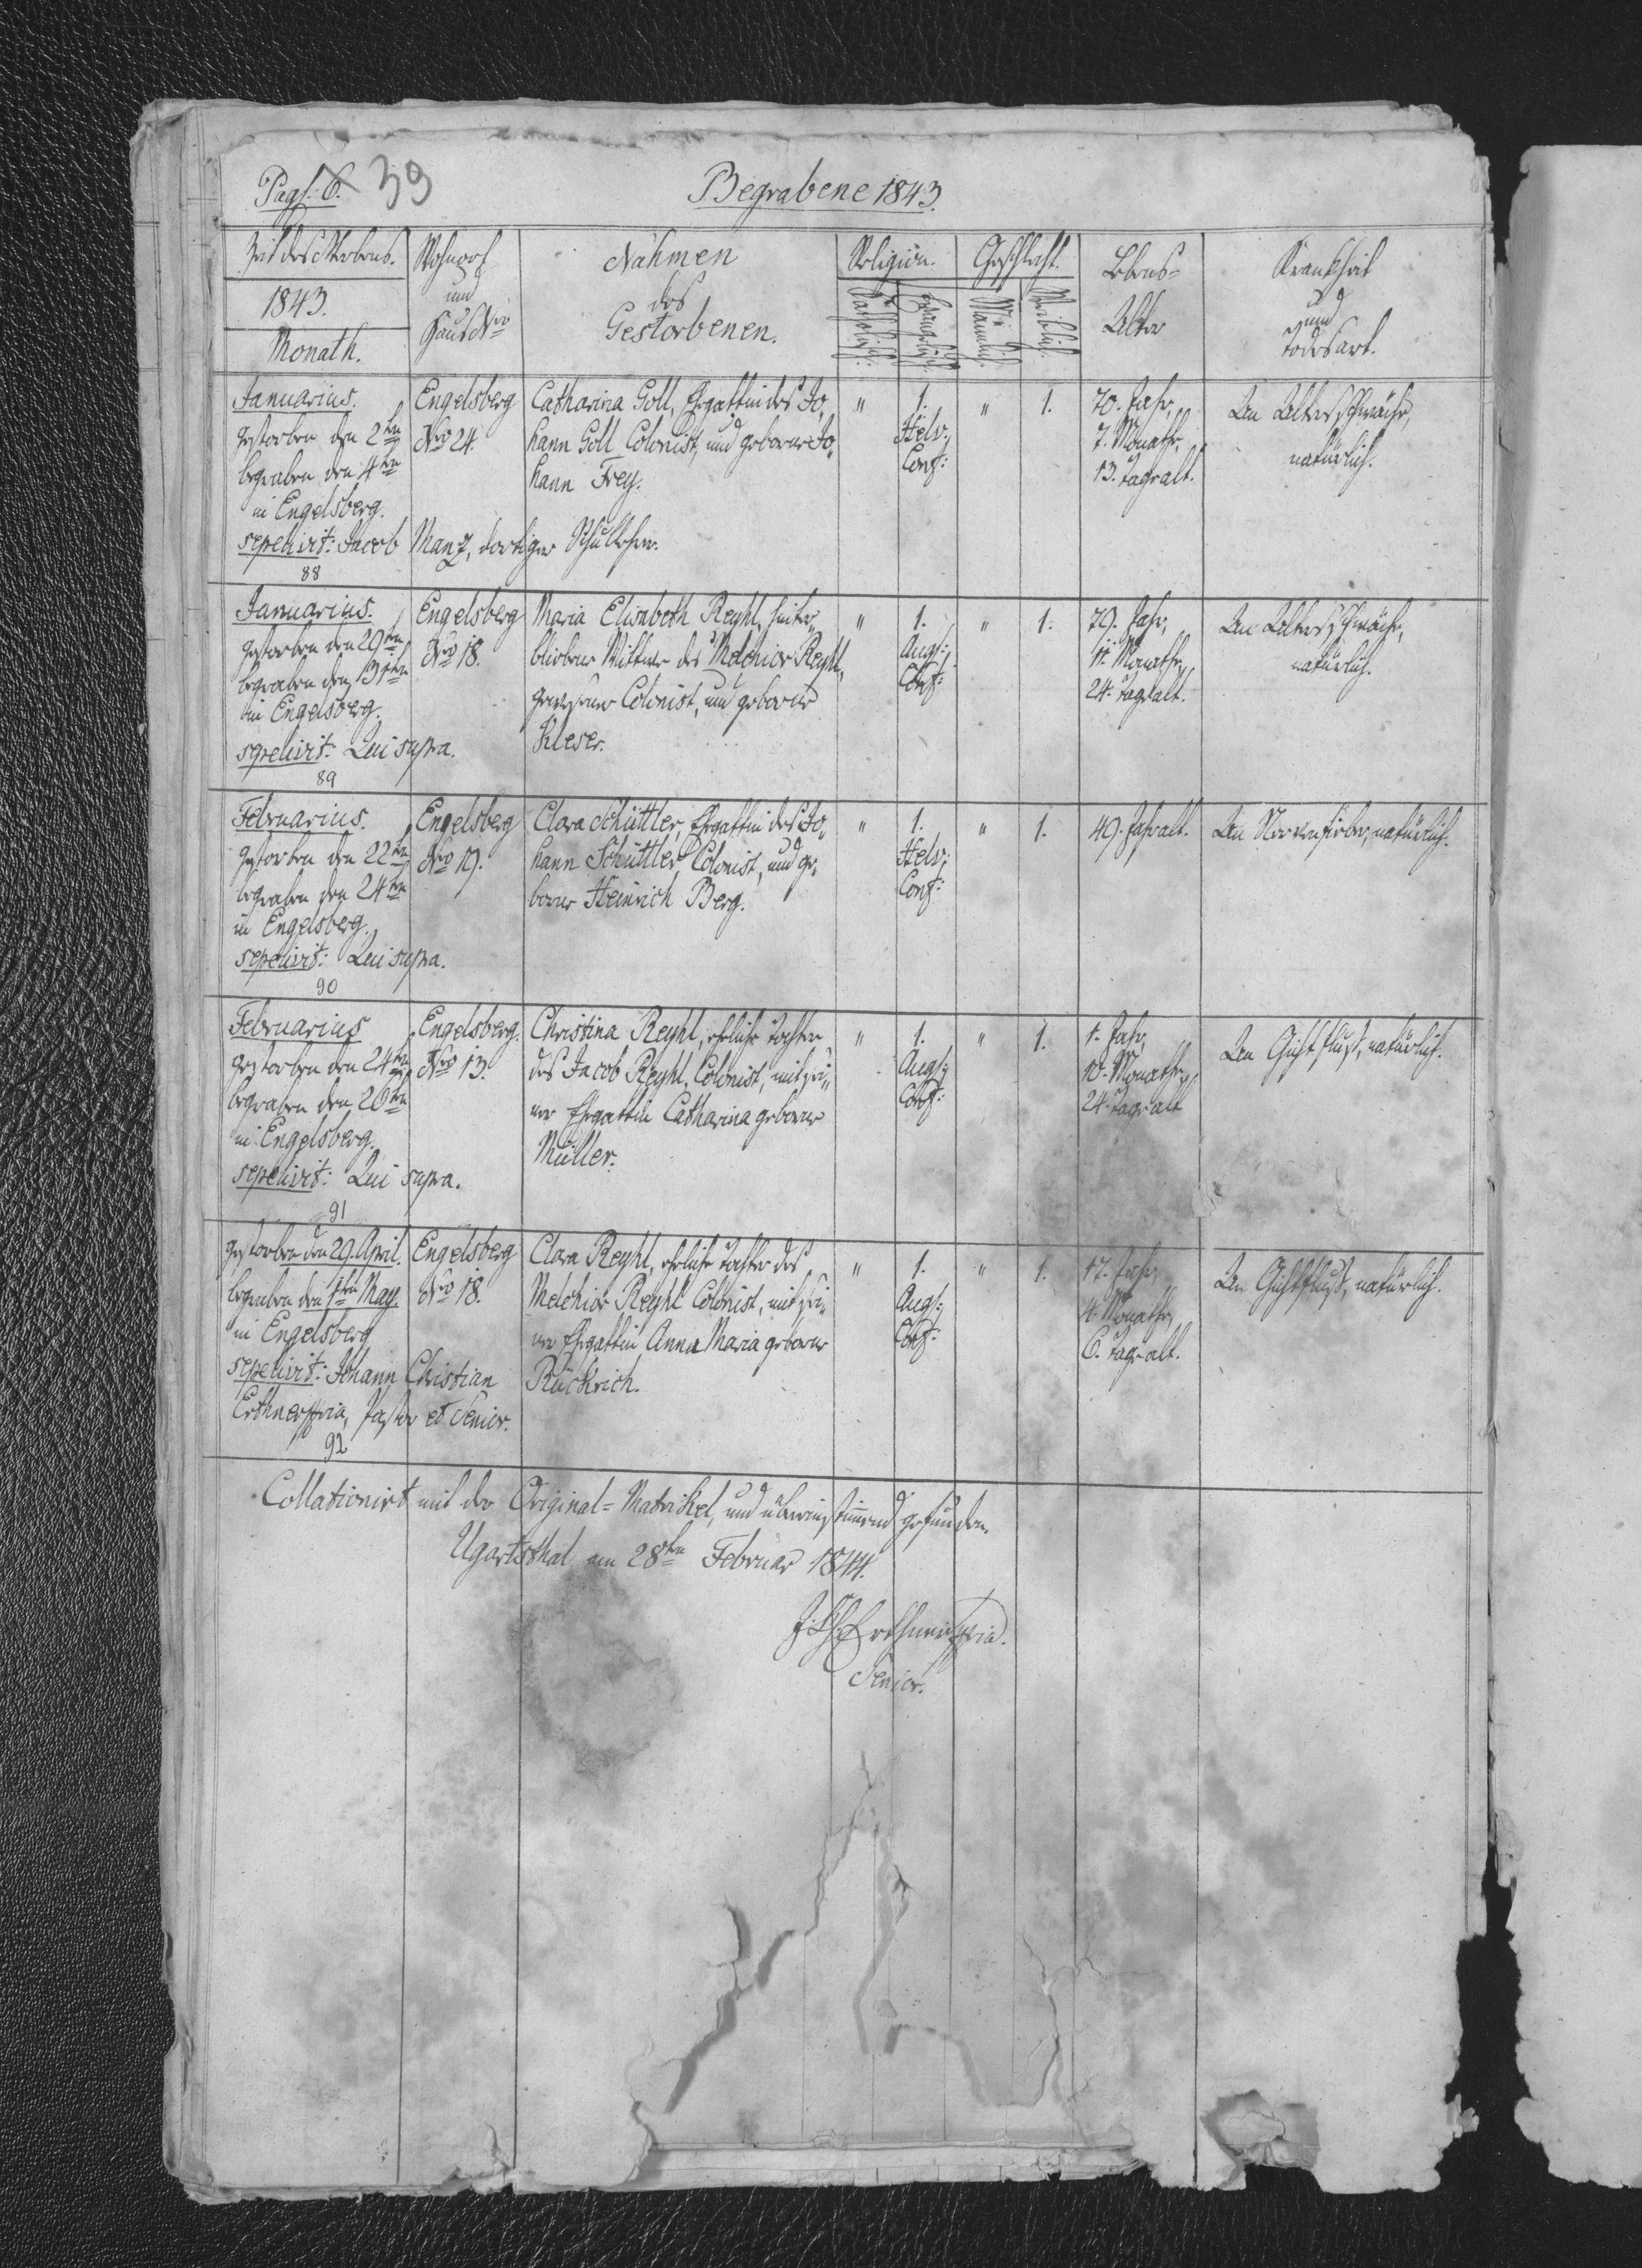 Pag: 6. 39
Begrabene 1843.
Zeit des Sterbens.
1843.
Monath.
Wohnort
und
Haus Nro
Nahmen
des
Gestorbenen.
Religion.
Katholisch.
Evangelisch.
Geschlecht.
Männlich.
Weiblich.
Lebens=
Alter
Krankheit
und
Todesart.
Januarius.
gestorben den 2ten
begraben den 4ten
in Engelsberg.
sepelivit: Jacob Manz, dortiger Schullehrer.
88
Engelsberg
Nro 24.
Catharina Goll, Ehegattin des Jo„
hann Goll Colonist, und geborene Jo„
hann Frey.
"
1.
Helv:
Conf:
"
1.
70. Jahr,
7. Monathe,
13. Tage alt.
An Altersschwäche,
natürlich.
Januarius.
gestorben den 29ten
begraben den 31ten
in Engelsberg.
sepelivit: Qui supra.
89
Engelsberg
Nro 18.
Maria Elisabeth Reyhl, hinter„
bliebene Wittwe des Melchior Reyhl,
gewesener Colonist, und geborene
Kleser.
"
1.
Augs:
Conf:
"
1.
79. Jahr,
11. Monathe,
24. Tage alt.
An Altersschwäche,
natürlich.
Februarius.
gestorben den 22ten
begraben den 24ten
in Engelsberg.
sepelivit: Qui supra.
90
Engelsberg
Nro 19.
Clara Schüttler, Ehegattin des Jo„
hann Schüttler Colonist, und ge„
borene Heinrich Berg.
"
1.
Helv:
Conf:
"
1.
49. Jahr alt.
An Nervenfieber, natürlich.
Februarius
gestorben den 24ten
begraben den 26ten
in Engelsberg.
sepelivit: Qui supra.
91
Engelsberg.
Nro 13.
Christina Reyhl, eheliche Tochter
des Jacob Reyhl, Colonist, mit sei„
ner Ehegattin Catharina geborene
Müller.
"
1.
Augs:
Conf:
"
1.
1. Jahr,
10. Monathe,
24. Tage alt
An Gichtfluß, natürlich.
gestorben den 29. April.
begraben den 1ten May.
in Engelsberg
sepelivit: Johann Christian
Pastor et Senior.
92
Engelsberg
Nro 18.
Clara Reyhl, eheliche Tochter des
Melchior Reyhl Colonist, mit sei„
ner Ehegattin Anna Maria geborene
Rückrich.
"
1.
Augs:
Conf:
"
1.
17. Jahr,
4. Monathe,
6. Tage alt.
An Gichtfluß, natürlich.
Collationirt mit der Original=Matrikel, und übereinstimmend gefunden.
Ugartsthal am 28ten Februar 1844.
Senior.